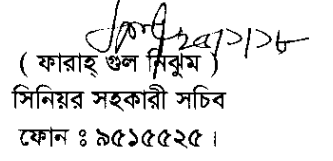 ( ফারাহ্ গুল নিঝুম )
সিনিয়র সহকারী সচিব
ফোন ঃ ৯৫১৫৫২৫।